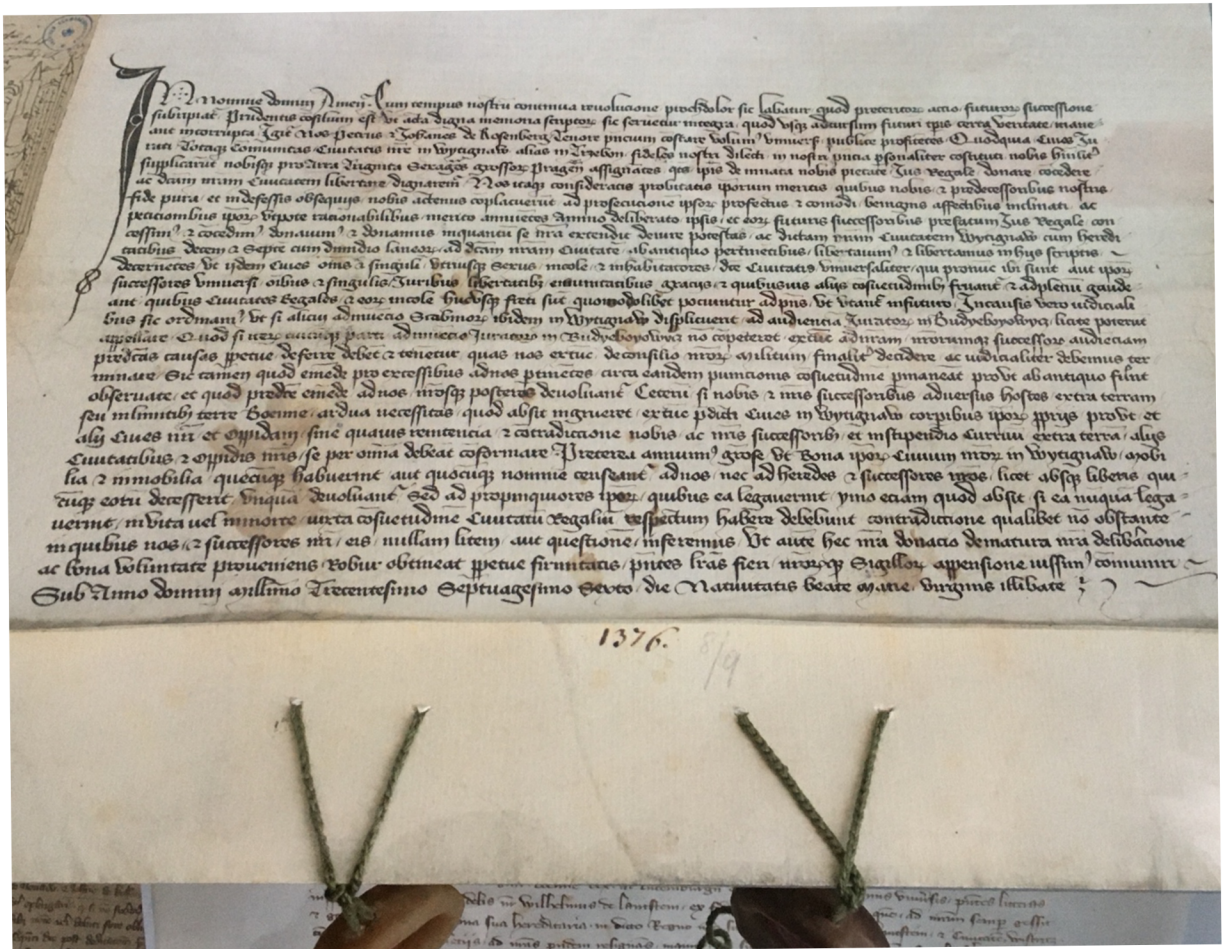 IN Nomine domini Amen. Cum tempus nostrum continua revolucione prochdolor sic labatur quod preteritorum actio futurorum successione
subripiat Prudentis cosilium est vt acta digna memoria scriptorum sic servetur integra, quod vsque ad cursum futuri tpis certa veritate mane
ant incorrupta Igitur Nos Petrus & Johanes de Rosenberg Tenore pncium costare volum vniversis publice profitetes Quod quia Cives Ju
rati Totaque Comunitas Civitatis nre in Wytignaw alias in Trzebon fideles nostri dilecti in nostri pncia psonaliter costituti nobis humiliter
supplicarunt nobisque pro Arra Triginta Seragenas grossorum Pragen assignates qts ipis de innata nobis pietate Jus Regale donare cocedere
ac dcam nram Civitatem libertare dignaremur Nos itaque consideratis probitatis iporum meritis quibus nobis & predecessoribus nostris
fide pura et indefessis obsequijs nobis actenus coplacuerunt ad prosecucione ipsorum profectus & comodi benignis affectibus inclinati ac
peticionibus iporum vtpote racionabilibus merito annuetes Animo deliberato ipsis et eorum futuris successoribus prefatum Jus Regale con
cessimus & cocedimus donavimus & donamus inquantum se nra extendit de iure potestas ac dictam nram Civitatem Wytignaw cum heredi
tatibus decem et Septe cum dimidio laneorum ad dcam nram Civitate ab antiquo pertinetibus libertavimus & libertamus in hijs scriptis
decernetes vt ijdem Cives omnes & singuli vtriusque Sexus incole & inhabitatores dce Civitatis vniversaliter qui pronunc ibi sunt aut iporum
successores vniversi oibus & singulis Juribus libertatibus emunitatibus gracijs & quibusvis alijs cosuetudinibus fruantur & adpleni gaude
ant quibus Civitates Regales & eorum incole hucusque freti sut quomodolibet pociuntur ad pns vt vtantur infuturo In causis vero iudiciali
bus sic ordinamus vt si alicui ad invecio Scabinorum ibidem in Wytignaw displicuerit ad audientia Juratorum in Budyeyowycz licite poterit
appellare Quod si vero cuicumque parti ad invecio Juratorum in Budyeyowycz no copeteret extunc ad nram nrorumque successorum audieciam
predcas causas ppetue deferre debet & tenetur quas nos extunc de consilio nrorum Militum finaliter decidere ac iudicialiter debemus ter
minare Sic tamen quod emede pro excessibus ad nos ptinetes circa eandem punicionis cosuetudine pmaneat prout ab antiquo funt
observate et quod predce emede ad nos nrosque posteros devoluantur Ceterum si nobis & nris successoribus adversus hostes extra terram
seu in limitibus terre Boemie ardua necessitas quod absit ingrueret extunc pdicti Cives in Wytignaw corpibus iporum pprijs prout et
alij Cives nri et Oppidani sine quavis renitencia & cotradiccione nobis ac nris successoribus et in stipendio Curruum extra terra alijs
Civitatibus & Oppidis nris se per omnia debeat coformare Preterea annuimus grose vt Bona iporum Civium nrorum in Wytignaw mobi
lia & immobilia quecumque habuerint aut quocumque nomine censeantur ad nos nec ad heredes & successores nros licet absque liberis qui
cumque eorum decesserit vnquam devoluantur Sed ad propinquiores iporum quibus ea legaverint ymo eciam quod absit si ea nunqua lega
verint in vita vel in morte iuxta cosuetudine Civitatum Regalium respectum habere debebunt contradictione qualibet no obstante
in quibus nos & successores nri eis nullam litem aut questione inferemus Vt aute hec nra donacio de matura nra deliberacione
ac bona voluntate proveniens Robur obtineat ppetue firmitatis pntes lras fieri nrorumque Sigillorum appensione iussimus comuniri
Sub Anno domini Millesimo Trecentesimo Septuagesimo Sexto die Nativitatis beate Marie virginis illibate
1376.
8/9
debis nr Wilhelmus de lantstem
sua hereditaria in dicto Regno